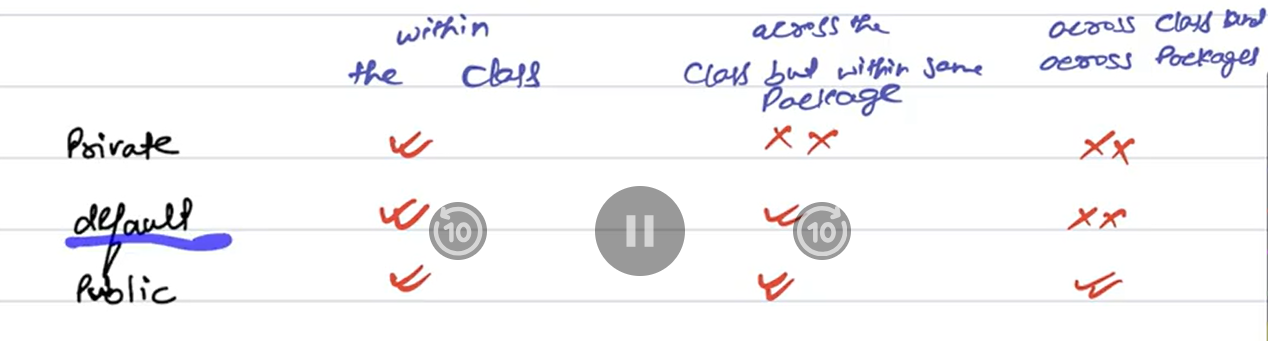 within the class
across the class but within same package
across class but across packages
Private ✓ ✗✗ ✗✗
default ✓ ✓ ✗✗
Public ✓ ✓ ✓
10 10